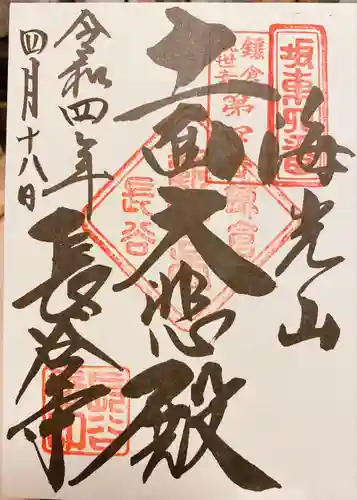 坂東四番
海光山
鎌倉
第四番
十一面大悲殿
長谷
鎌倉
令和四年
四月十八日
長谷寺